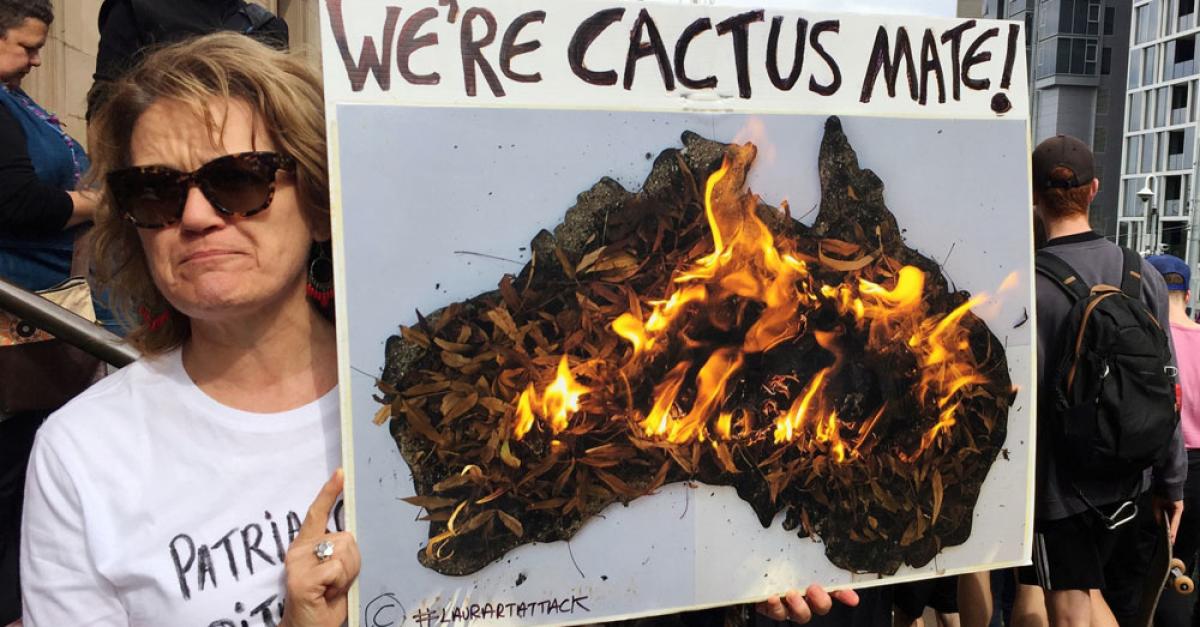 WE'RE CACTUS MATE!
© #LAURARTATTACK